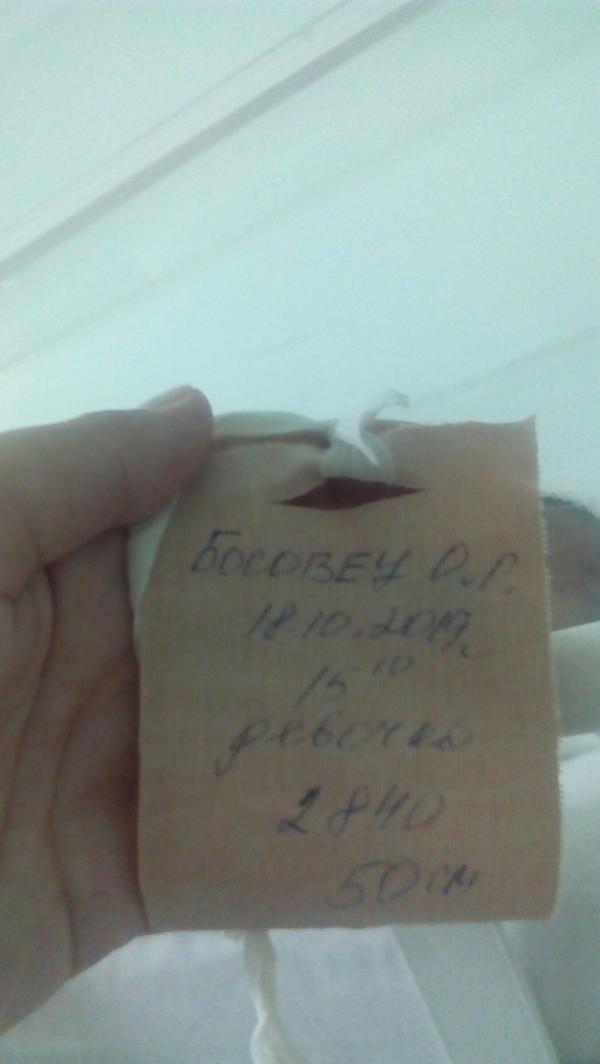 БОСОВЕЦ О.Г.
18.10.2019г
15 10
девочка
2840
50 см